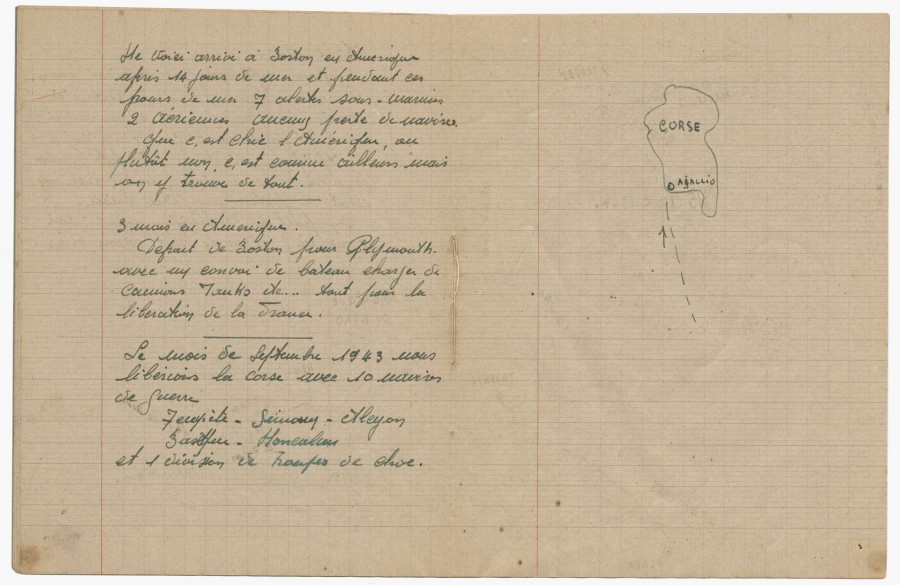 Me voici arrivé à Boston en Amérique
après 14 jours de mer et pendant ces
jours de mer 7 alertes sous-marins
2 aériennes aucune perte de navires.
Que c'est chic l'Amérique, ou
plutôt non, c'est comme ailleurs mais
on y trouve de tout.
3 mois en Amérique.
Depart de Boston pour Plymouth.
avec un convoi de bateau charger de
camions Tanks ite... tout pour la
liberation de la France.
Le mois de Septembre 1943 nous
libérions la corse avec 10 navires
de guerre
Tempête - Simoun - Alcyon
et 1 division de Troupes de choc.
CORSE
AJALLIO